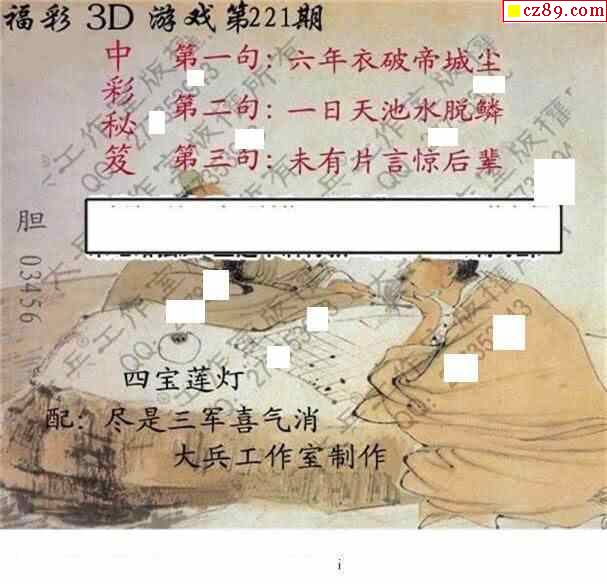 cz89.com
福彩 3D 游戏第221期
中彩秘笈
第一句：六年衣破帝城尘
第二句：一日天池水脱鳞
第三句：未有片言惊后辈
胆 03456
四宝莲灯
配：尽是三军喜气消
大兵工作室制作
i